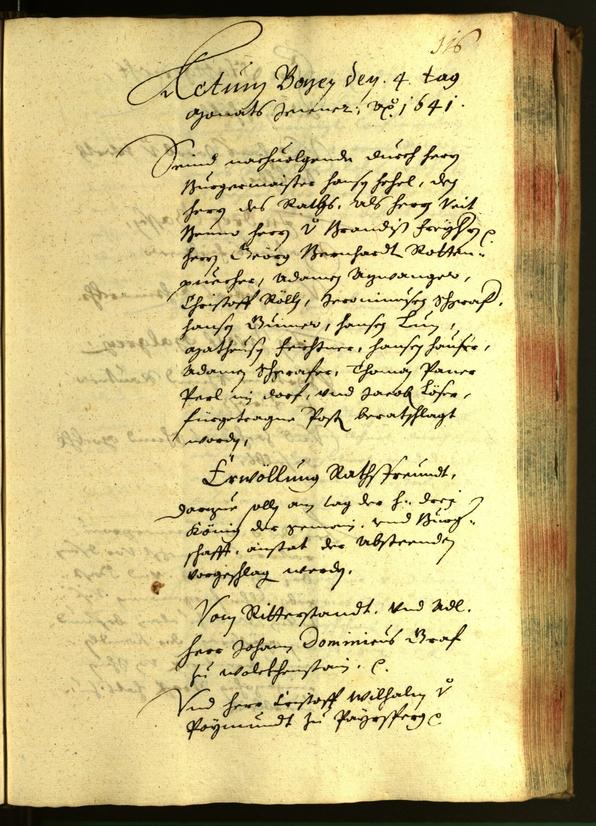 116
Actum Bozen den. 4. tag
Monats Jenner, Ao. 1641.
Seind nachuolgende durch herrn
Burgermaister hansen hohel, den
herrn des Raths, als herrn Veit
Benno herrn v Brandis freyh
herrn Geörg Bernhardt Rotten-
puecher, Adamen
Christoff Rölln, Jeronimusen
hansen, hansen Lun,
Matheusen feichtner, hansen
Adamen, Thoman Paner
Perl im dorf, vnd Jacob Löser,
fürgetragne Post beratschlagt
worden,
Erwöllung Rathsfreundt,
darzue solle am tag der h: drei
König der gemein, vnd Burg-
schafft, anstat der absteenden
vorgeschlag werden.
Vom Ritterstandt, vnd Adl.
herr Johann Dominicus Graf
zu wolckhenstain. c.
Vnd herr Cristoff Wilhalm v
Poÿmundt zu Paÿrsperg c